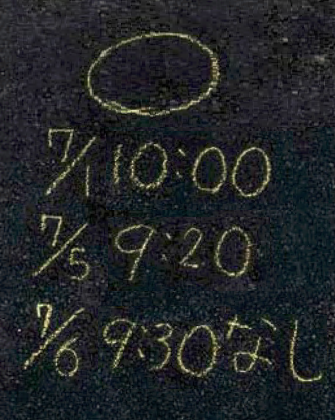 7/1 10:00
7/5 9:20
7/6 9:30なし